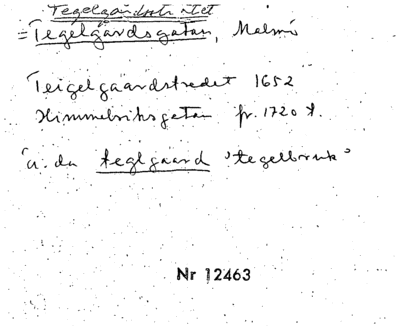 Tegelgårdssträtet
= Tegelgårdsgatan, Malmö
Teigelgaardstredet 1652
Himmelriksgatan fr. 1720 t.
ä. da teglgaard 'tegelbruk'
Nr 12463